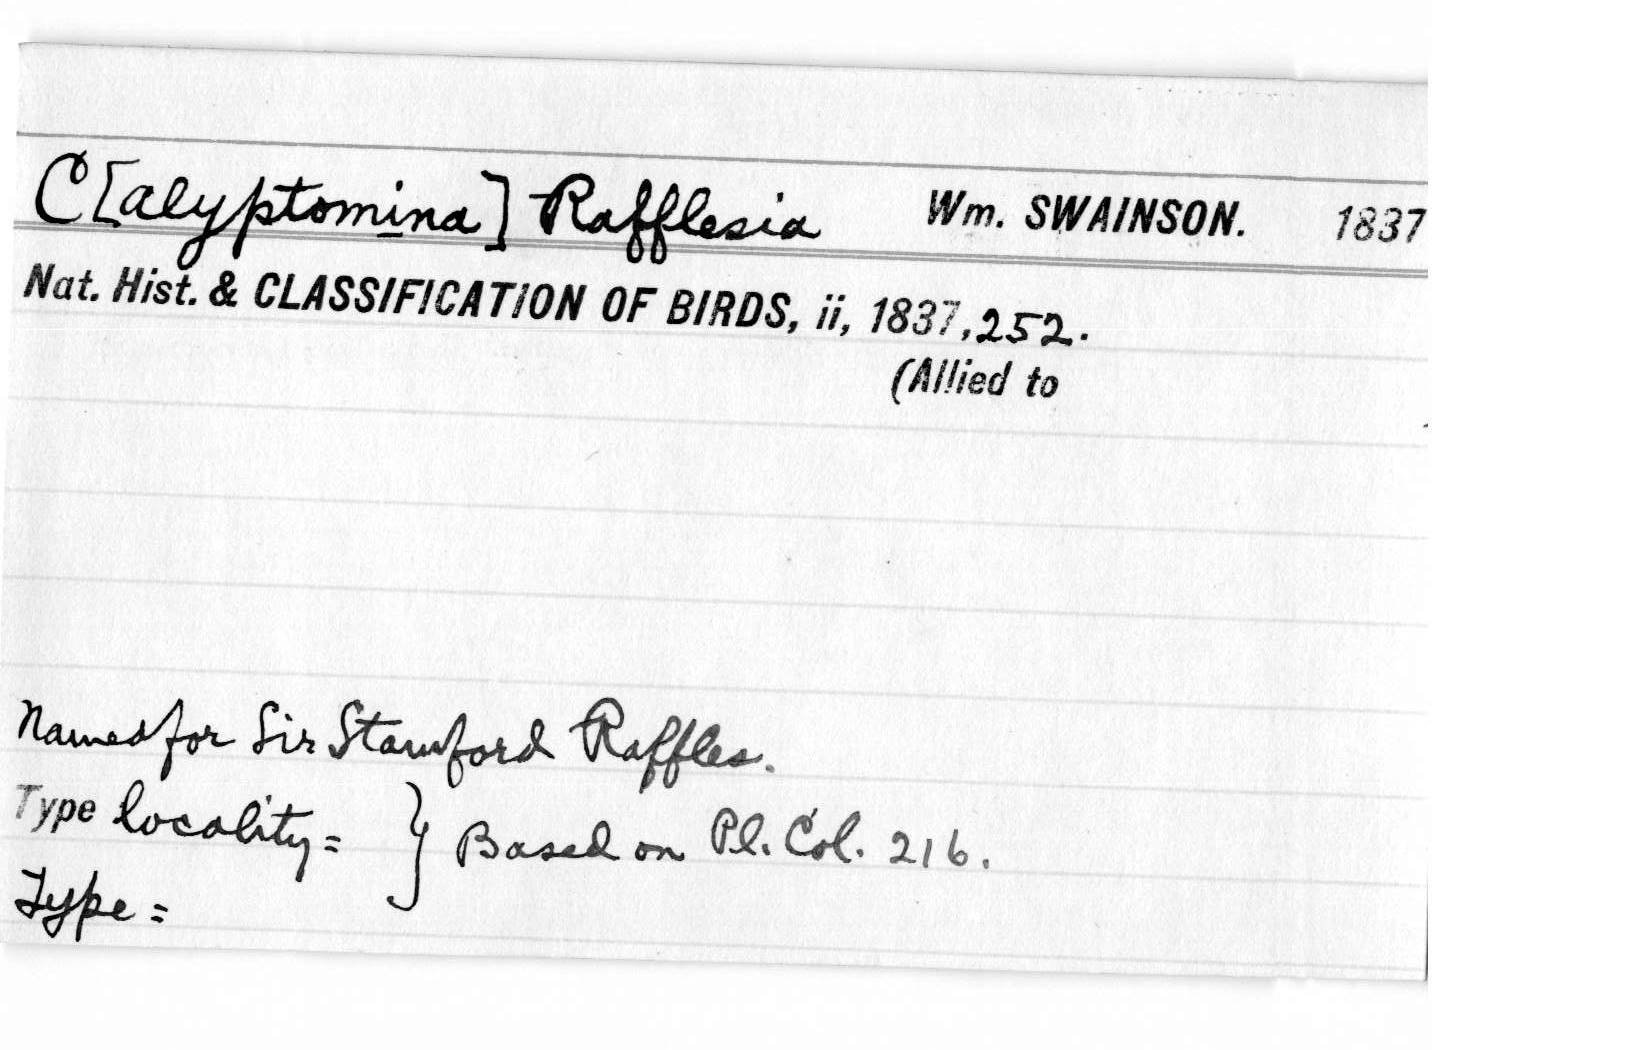 C[alyptomina] Rafflesia Wm. SWAINSON. 1837
Nat. Hist. & CLASSIFICATION OF BIRDS, ii, 1837, 252.
(Allied to
Named for Sir Stamford Raffles.
Type locality = } Based on Pl. Col. 216.
Type =